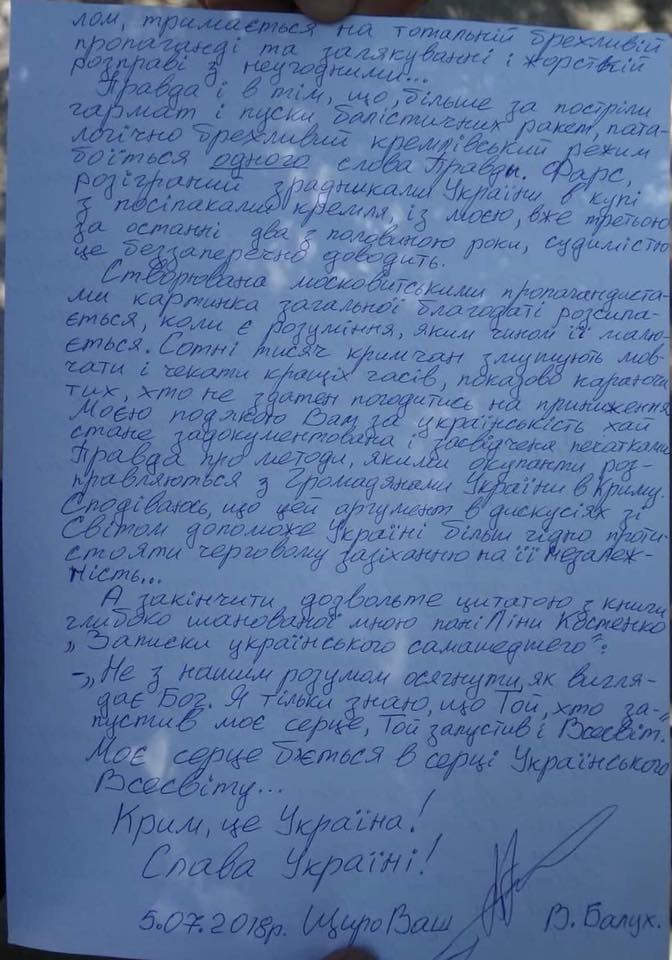 лом, тримається на тотальній брехливій
пропаганді та залякуванні і жорсткій
розправі з неугодними...
Правда і в тім, що, більше за постріли
гармат і пуски балістичних ракет, пата-
логічно брехливий кремлівський режим
боїться одного слова Правди. Фарс,
розіграний зрадниками України в купі
з посіпаками кремля, із моєю, вже третьою
за останні два з половиною роки, судимістю
це беззаперечно доводить.
Створювана московитськими пропагандиста-
ми картинка загальної благодаті розсипа-
ється, коли є розуміння, яким чином її малю-
ється. Сотні тисяч кримчан змушують мов-
чати і чекати кращіх часів, показово караючи
тих, хто не здатен погодитись на приниження
Моєю подякою Вам за українськість хай
стане задокументована і засвідчена печатками
Правда про методи, якими окупанти роз-
правляються з Громадянами України в Криму
Сподіваюсь, що цей аргумент в дискусіях зі
Світом допоможе Україні більш гідно проти-
стояти черговому зазіханню на її незалеж-
ність...
А закінчити дозвольте цитатою з книги
глибоко шанованої мною пані Ліни Костенко
„Записки українського самашедшего":
-„Не з нашим розумом осягнути, як вигля-
дає Бог. Я тільки знаю, що Той, хто за-
пустив моє серце, Той запустив і Всесвіт."
Моє серце бється в серці Українського
Всесвіту...
Крим, це Україна!
Слава Україні!
5.07.2018р. Щиро Ваш В. Балух.